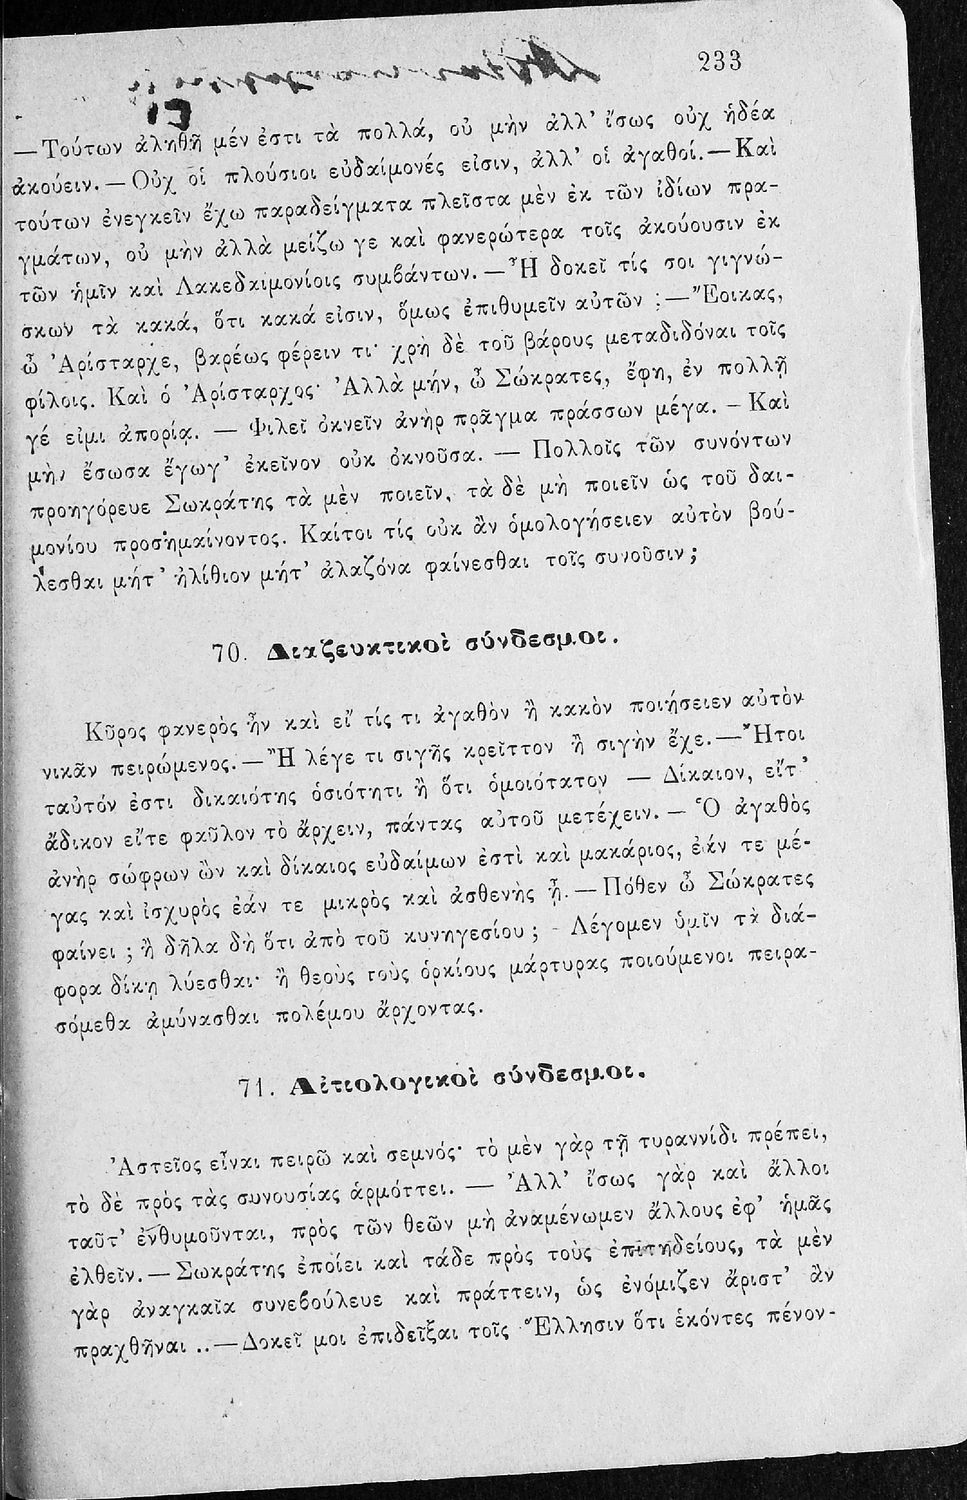 233
—Τούτων ἀληθῆ μέν ἐστι τὰ πολλά, οὐ μὴν ἀλλ' ἴσως οὐχ ἡδέα
ἀκούειν.—Οὐχ οἱ πλούσιοι εὐδαίμονές εἰσιν, ἀλλ' οἱ ἀγαθοί.—Καὶ
τούτων ἐνεγκεῖν ἔχω παραδείγματα πλεῖστα μὲν ἐκ τῶν ἰδίων πρα-
γμάτων, οὐ μὴν ἀλλὰ μείζω γε καὶ φανερώτερα τοῖς ἀκούουσιν ἐκ
τῶν ἡμῖν καὶ Λακεδαιμονίοις συμβάντων.—Ἦ δοκεῖ τίς σοι γιγνώ-
σκων τὰ κακά, ὅτι κακά εἰσιν, ὅμως ἐπιθυμεῖν αὐτῶν ;—Ἔοικας,
ὦ Ἀρίσταρχε, βαρέως φέρειν τι· χρὴ δὲ τοῦ βάρους μεταδιδόναι τοῖς
φίλοις. Καὶ ὁ Ἀρίσταρχος· Ἀλλὰ μήν, ὦ Σώκρατες, ἔφη, ἐν πολλῇ
γέ εἰμι ἀπορίᾳ. — Φιλεῖ ὀκνεῖν ἀνὴρ πρᾶγμα πράσσων μέγα. – Καὶ
μὴν ἔσωσα ἔγωγ' ἐκεῖνον οὐκ ὀκνοῦσα. — Πολλοῖς τῶν συνόντων
προηγόρευε Σωκράτης τὰ μὲν ποιεῖν, τὰ δὲ μὴ ποιεῖν ὡς τοῦ δαι-
μονίου προσημαίνοντος. Καίτοι τίς οὐκ ἂν ὁμολογήσειεν αὐτὸν βού-
λεσθαι μήτ' ἠλίθιον μήτ' ἀλαζόνα φαίνεσθαι τοῖς συνοῦσιν ;
70. Διαζευκτικοὶ σύνδεσμοι.
Κῦρος φανερὸς ἦν καὶ εἴ τίς τι ἀγαθὸν ἢ κακὸν ποιήσειεν αὐτὸν
νικᾶν πειρώμενος.—Ἢ λέγε τι σιγῆς κρεῖττον ἢ σιγὴν ἔχε.—Ἤτοι
ταὐτόν ἐστι δικαιότης ὁσιότητι ἢ ὅτι ὁμοιότατον — Δίκαιον, εἴτ'
ἄδικον εἴτε φαῦλον τὸ ἄρχειν, πάντας αὐτοῦ μετέχειν. — Ὁ ἀγαθὸς
ἀνὴρ σώφρων ὢν καὶ δίκαιος εὐδαίμων ἐστὶ καὶ μακάριος, ἐάν τε μέ-
γας καὶ ἰσχυρὸς ἐάν τε μικρὸς καὶ ἀσθενὴς ᾖ.—Πόθεν ὦ Σώκρατες
φαίνει ; ἢ δῆλα δὴ ὅτι ἀπὸ τοῦ κυνηγεσίου ; - Λέγομεν ὑμῖν τὰ διά-
φορα δίκῃ λύεσθαι· ἢ θεοὺς τοὺς ὁρκίους μάρτυρας ποιούμενοι πειρα-
σόμεθα ἀμύνασθαι πολέμου ἄρχοντας.
71. Αἰτιολογικοὶ σύνδεσμοι.
Ἀστεῖος εἶναι πειρῶ καὶ σεμνός· τὸ μὲν γὰρ τῇ τυραννίδι πρέπει,
τὸ δὲ πρὸς τὰς συνουσίας ἁρμόττει. — Ἀλλ' ἴσως γὰρ καὶ ἄλλοι
ταῦτ' ἐνθυμοῦνται, πρὸς τῶν θεῶν μὴ ἀναμένωμεν ἄλλους ἐφ' ἡμᾶς
ἐλθεῖν.—Σωκράτης ἐποίει καὶ τάδε πρὸς τοὺς ἐπιτηδείους, τὰ μὲν
γὰρ ἀναγκαῖα συνεβούλευε καὶ πράττειν, ὡς ἐνόμιζεν ἄριστ' ἂν
πραχθῆναι ..—Δοκεῖ μοι ἐπιδεῖξαι τοῖς Ἕλλησιν ὅτι ἑκόντες πένον-